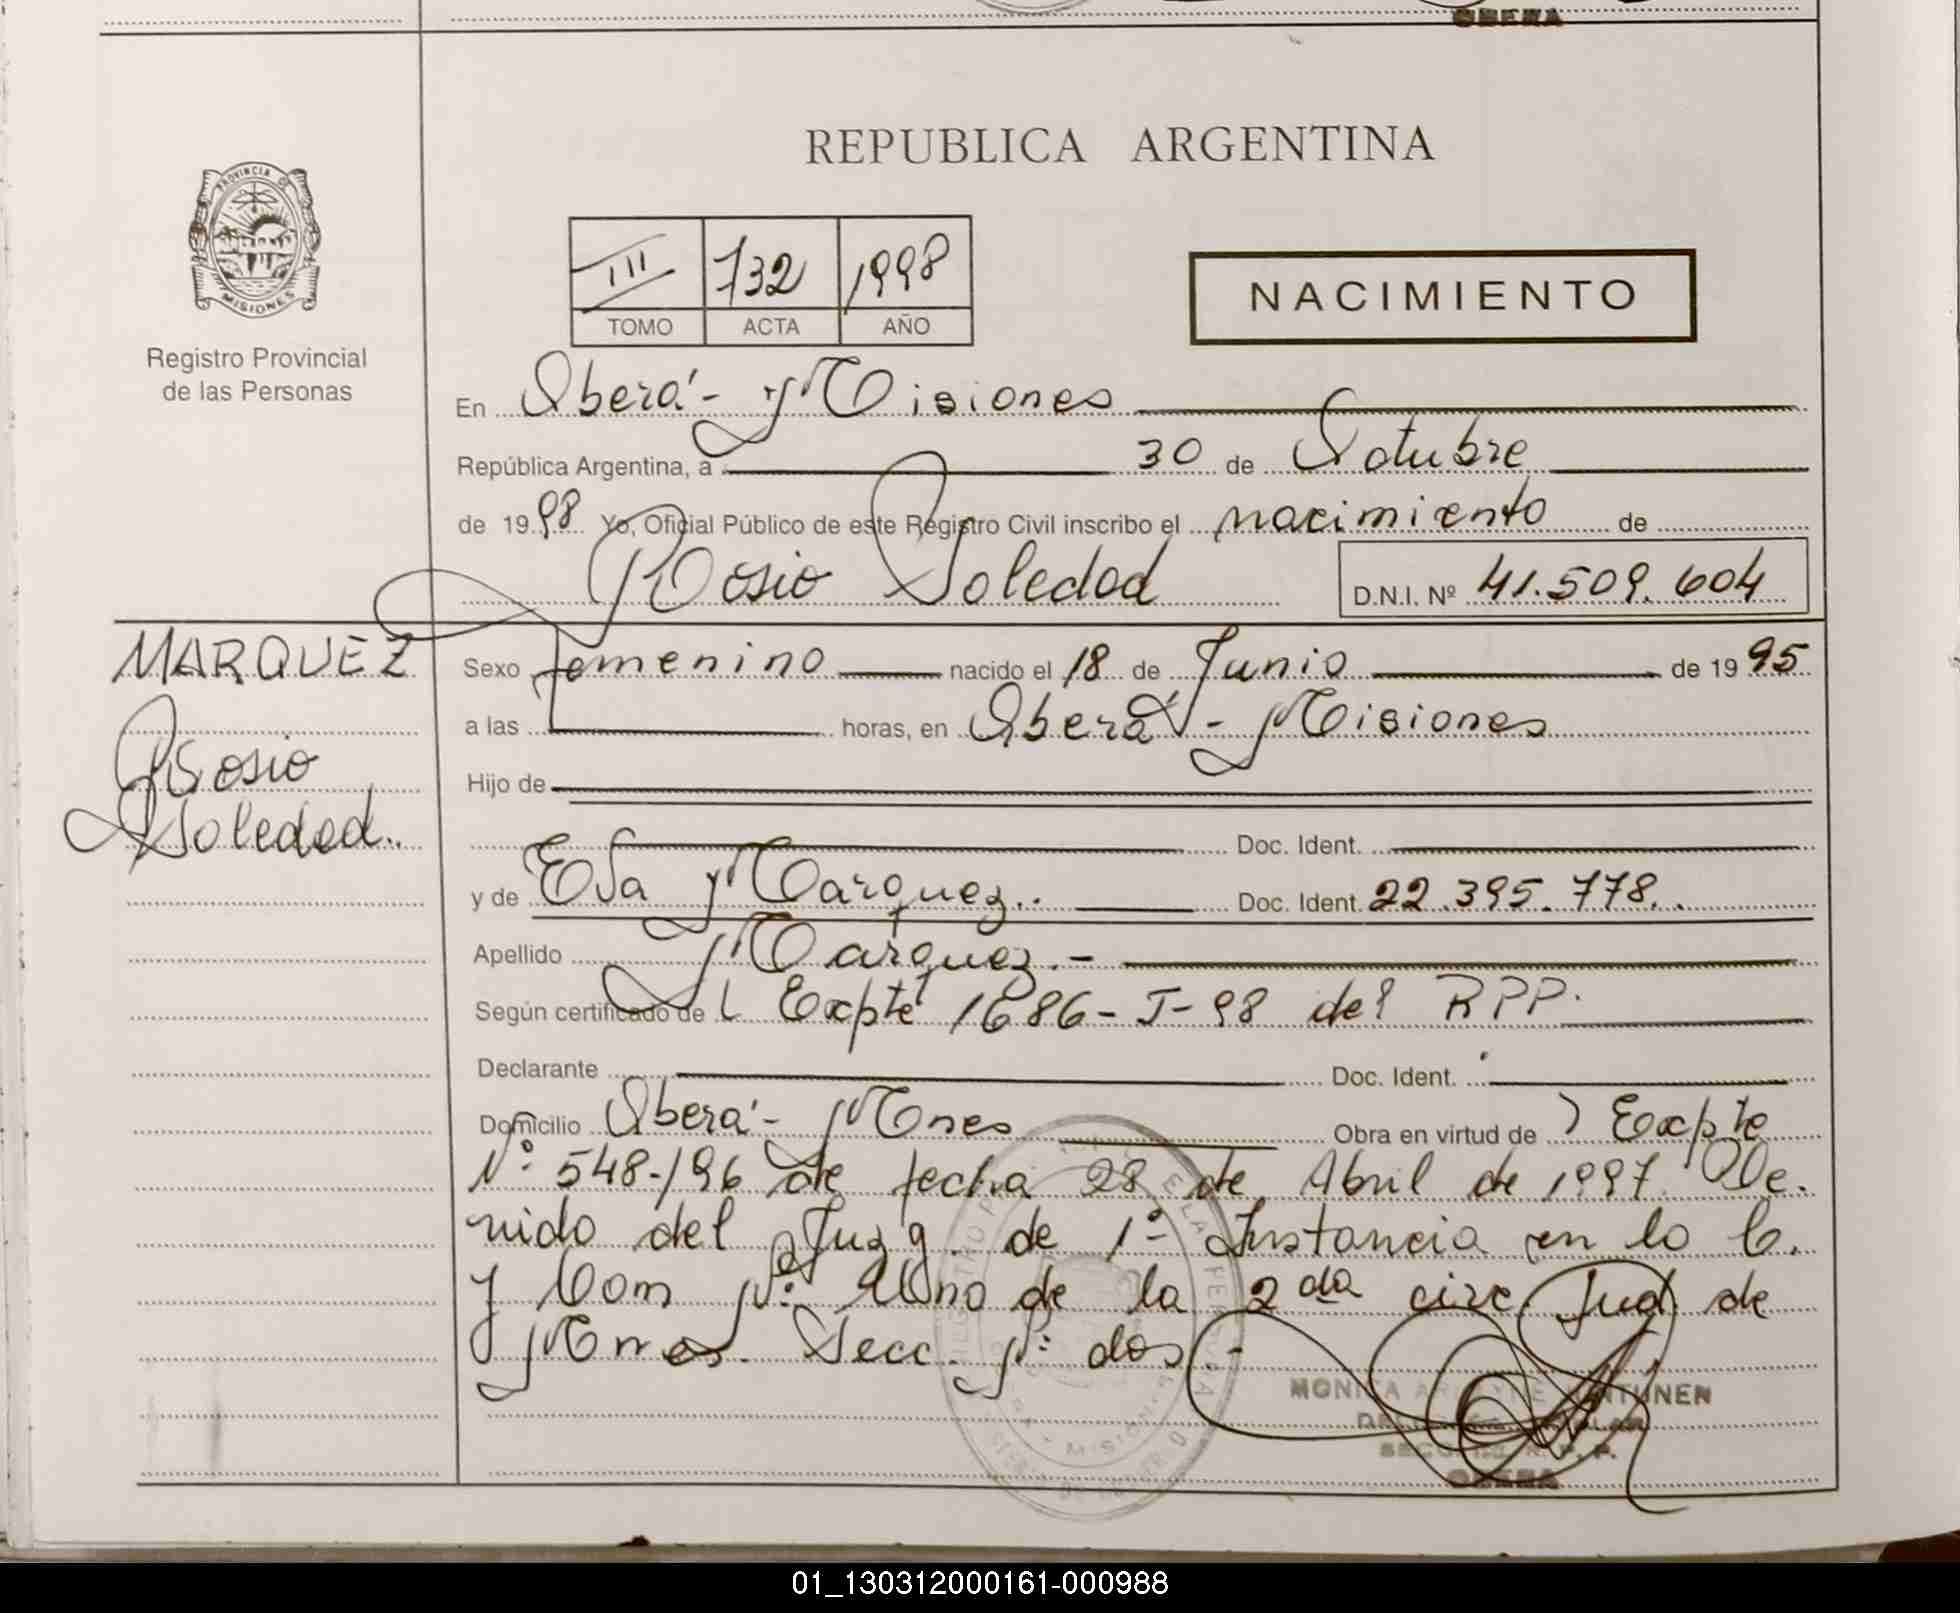 OBERA
REPUBLICA ARGENTINA
PROVINCIA DE
MISIONES
Registro Provincial
de las Personas
III 732 1998
TOMO ACTA AÑO
NACIMIENTO
En Oberá - Misiones
República Argentina, a 30 de Octubre
de 1998 Yo, Oficial Público de este Registro Civil inscribo el nacimiento de
Rosio Soledad D.N.I. Nº 41.509.604
MARQUEZ
Rosio
Soledad.
Sexo femenino nacido el 18 de Junio de 1995
a las horas, en Oberá - Misiones
Hijo de
Doc. Ident.
y de Eva Marquez.. Doc. Ident. 22.395.778.
Apellido Marquez.-
Según certificado de L Expte 1686-J-98 del RPP.
Declarante Doc. Ident.
Domicilio Oberá - Mnes Obra en virtud de Expte
Nº 548-/96 de fecha 28 de Abril de 1997. Ve.
nido del Juzg. de 1º Instancia en lo C.
y Com Nº Uno de la 2da circ Jud de
Mnes. Secc. Nº dos.-
MONICA ANTUNEN
OBERA
01_130312000161-000988